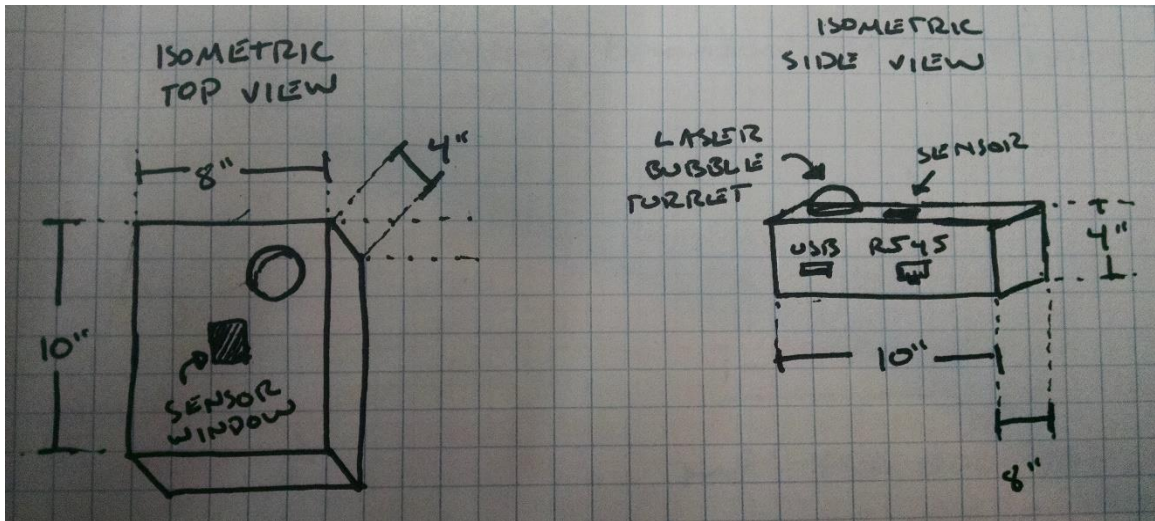 ISOMETRIC
TOP VIEW
8"
4"
10"
SENSOR
WINDOW
ISOMETRIC
SIDE VIEW
LASER
BUBBLE
TURRET
SENSOR
USB RJ45
4"
10"
8"